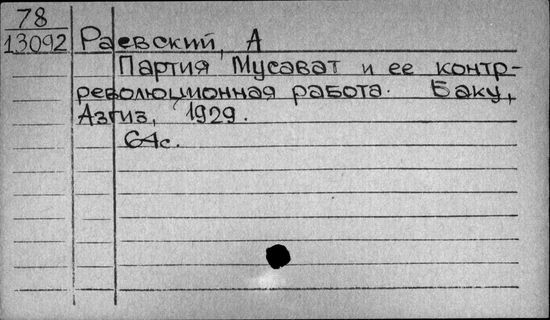 78
13092 Раевский, А
Партия Мусават и ее контр-
революционная работа. Баку,
Азгиз, 1929.
64с.